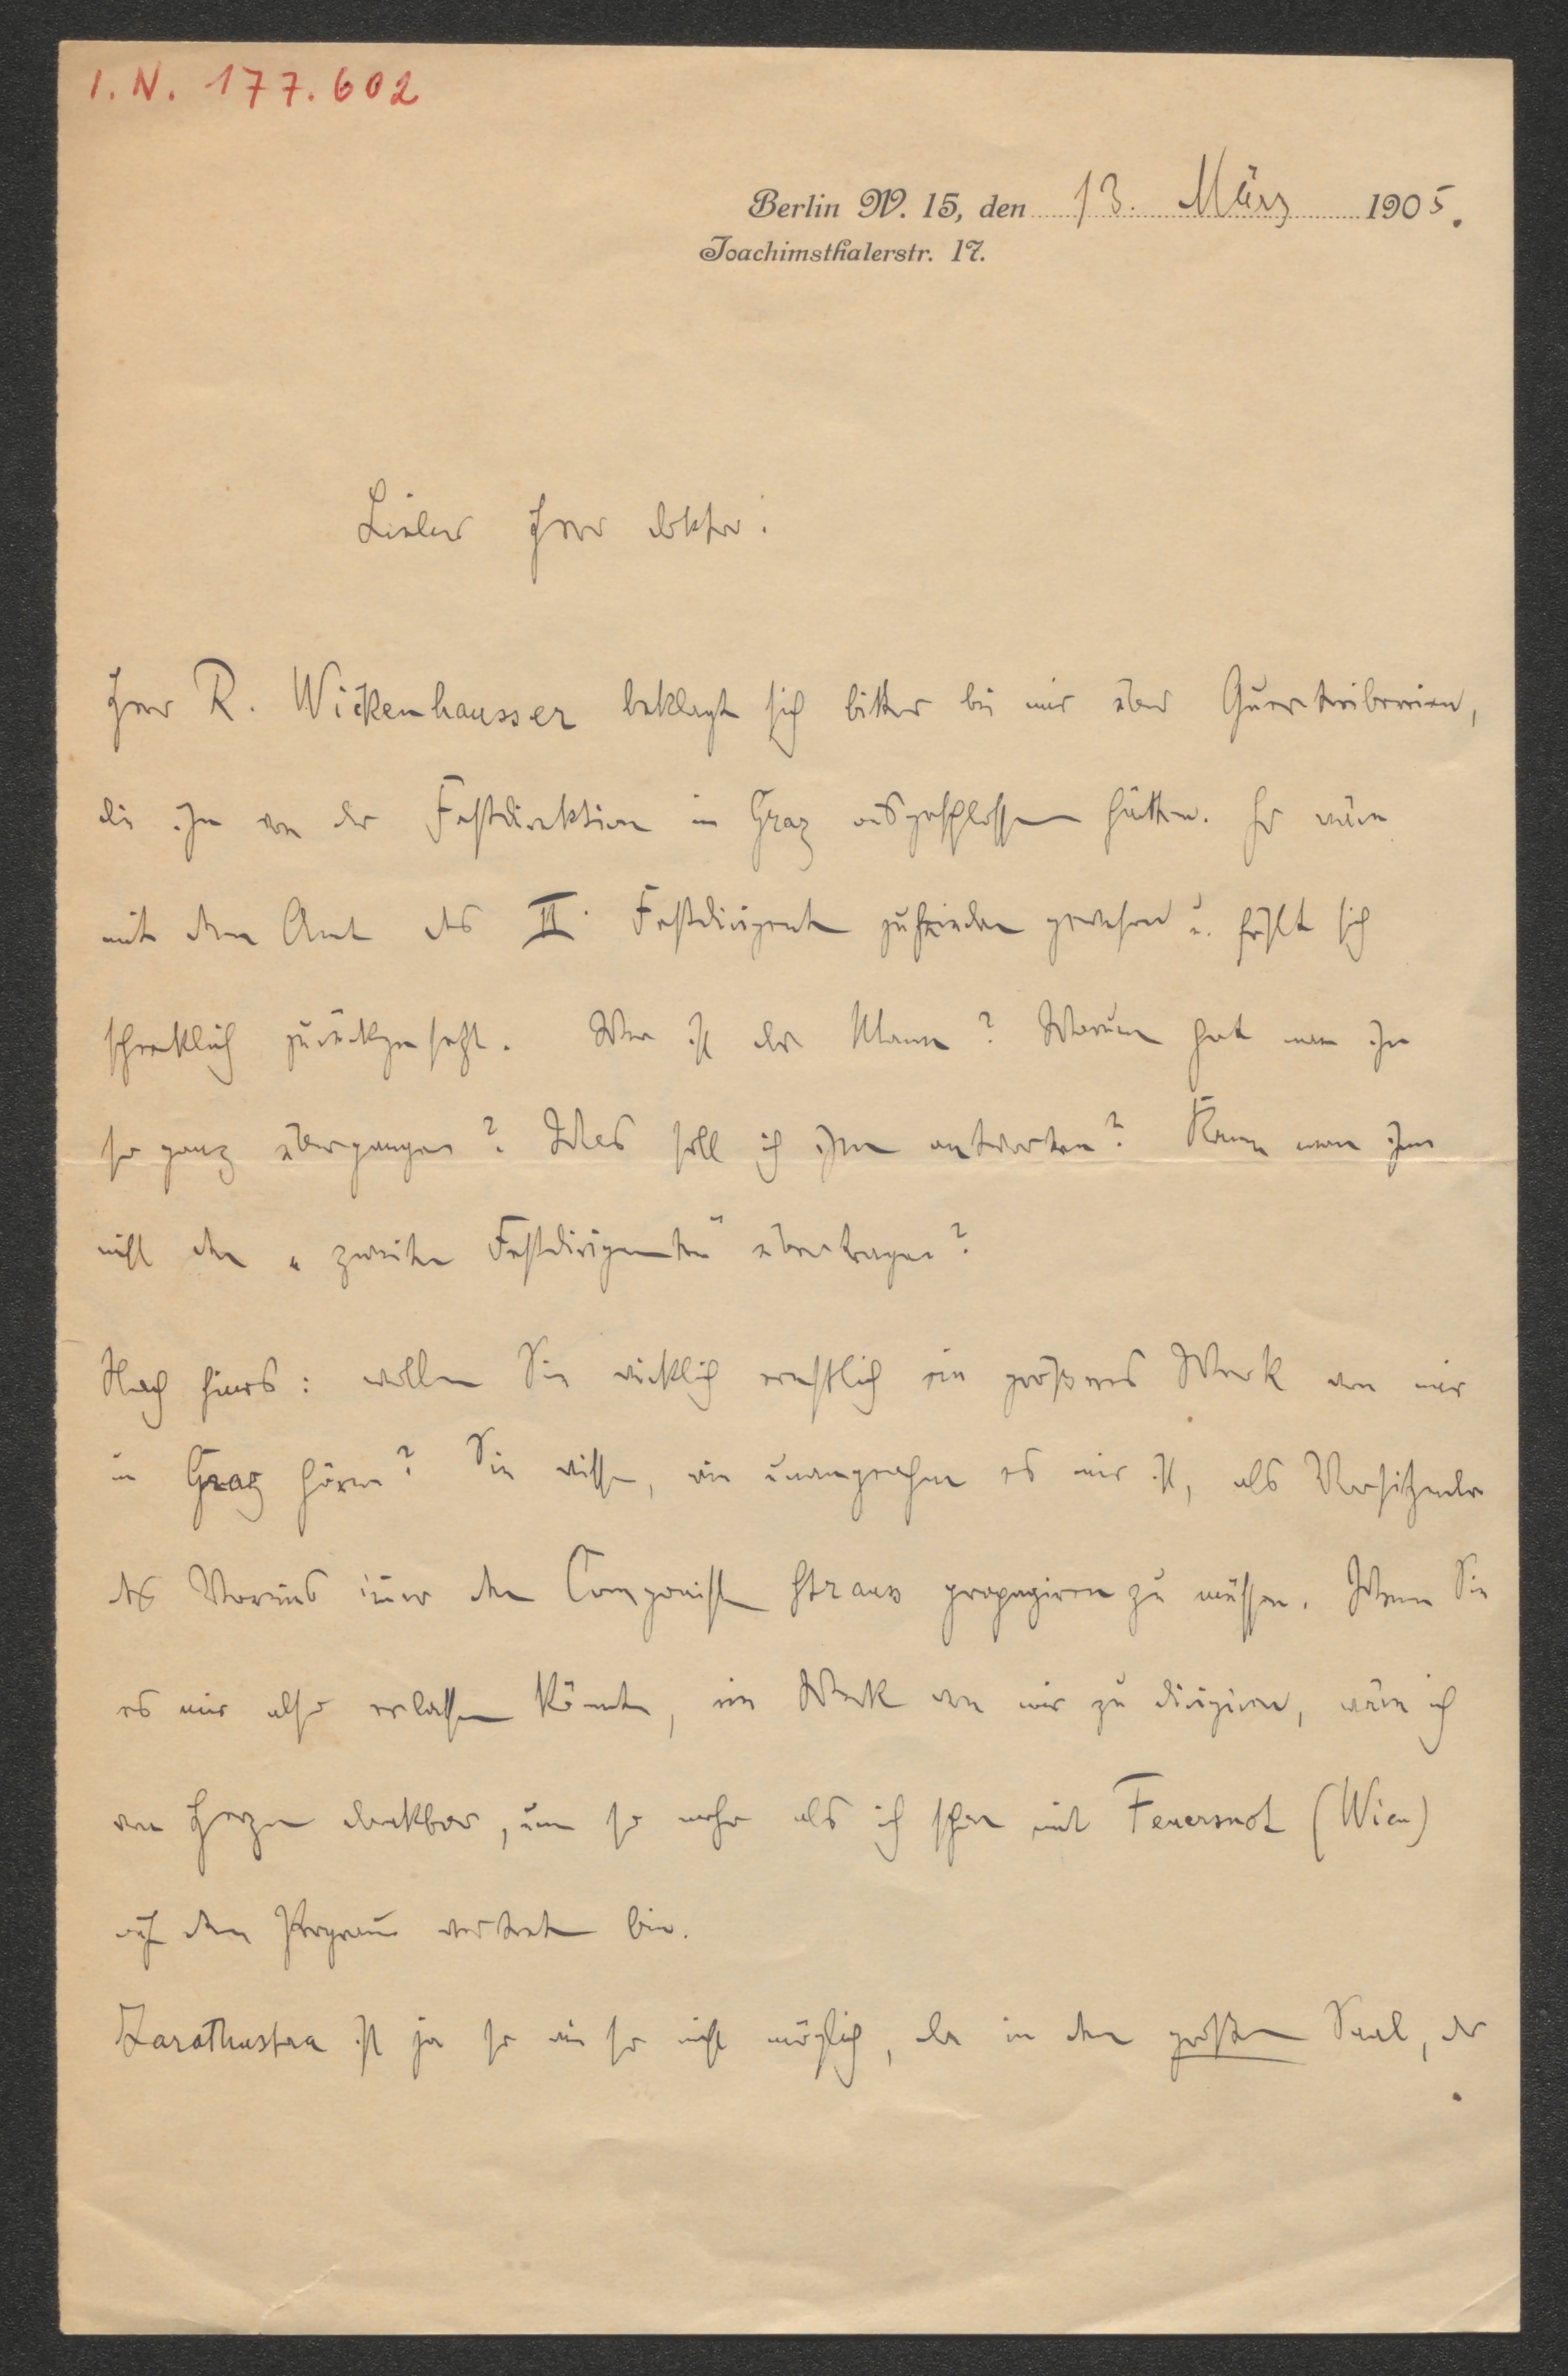 I. N. 177.602
Berlin W. 15, den 13. März 1905.
Joachimsthalerstr. 17.
Lieber Herr Doktor!
Herr R. Wickenhausser beklagt sich bitter bei mir über Quertreibereien,
die ihn von der Festdirektion in Graz ausgeschlossen hätten. Er wäre
mit dem Amt des II. Festdirigenten zufrieden gewesen u. fühlt sich
schrecklich zurückgesetzt. Wer ist der Mann? Warum hat man ihn
so ganz übergangen? Was soll ich ihm antworten? Kann man ihm
nicht den „zweiten Festdirigenten" übertragen?
Noch : wollen Sie wirklich ernstlich ein größeres Werk von mir
in Graz hören? Sie wissen, wie unangenehm es mir ist, als Vorsitzender
des Vereins im̄er den Componisten Strauss propagiren zu müssen. Wenn Sie
es mir also erlassen könnten, ein Werk von mir zu dirigiren, wäre ich
von Herzen dankbar, um so mehr als ich schon mit Feuersnot (Wien)
auf dem Program̄ vertreten bin.
Zarathustra ist ja so wie so nicht möglich, da in dem großen Saal, der